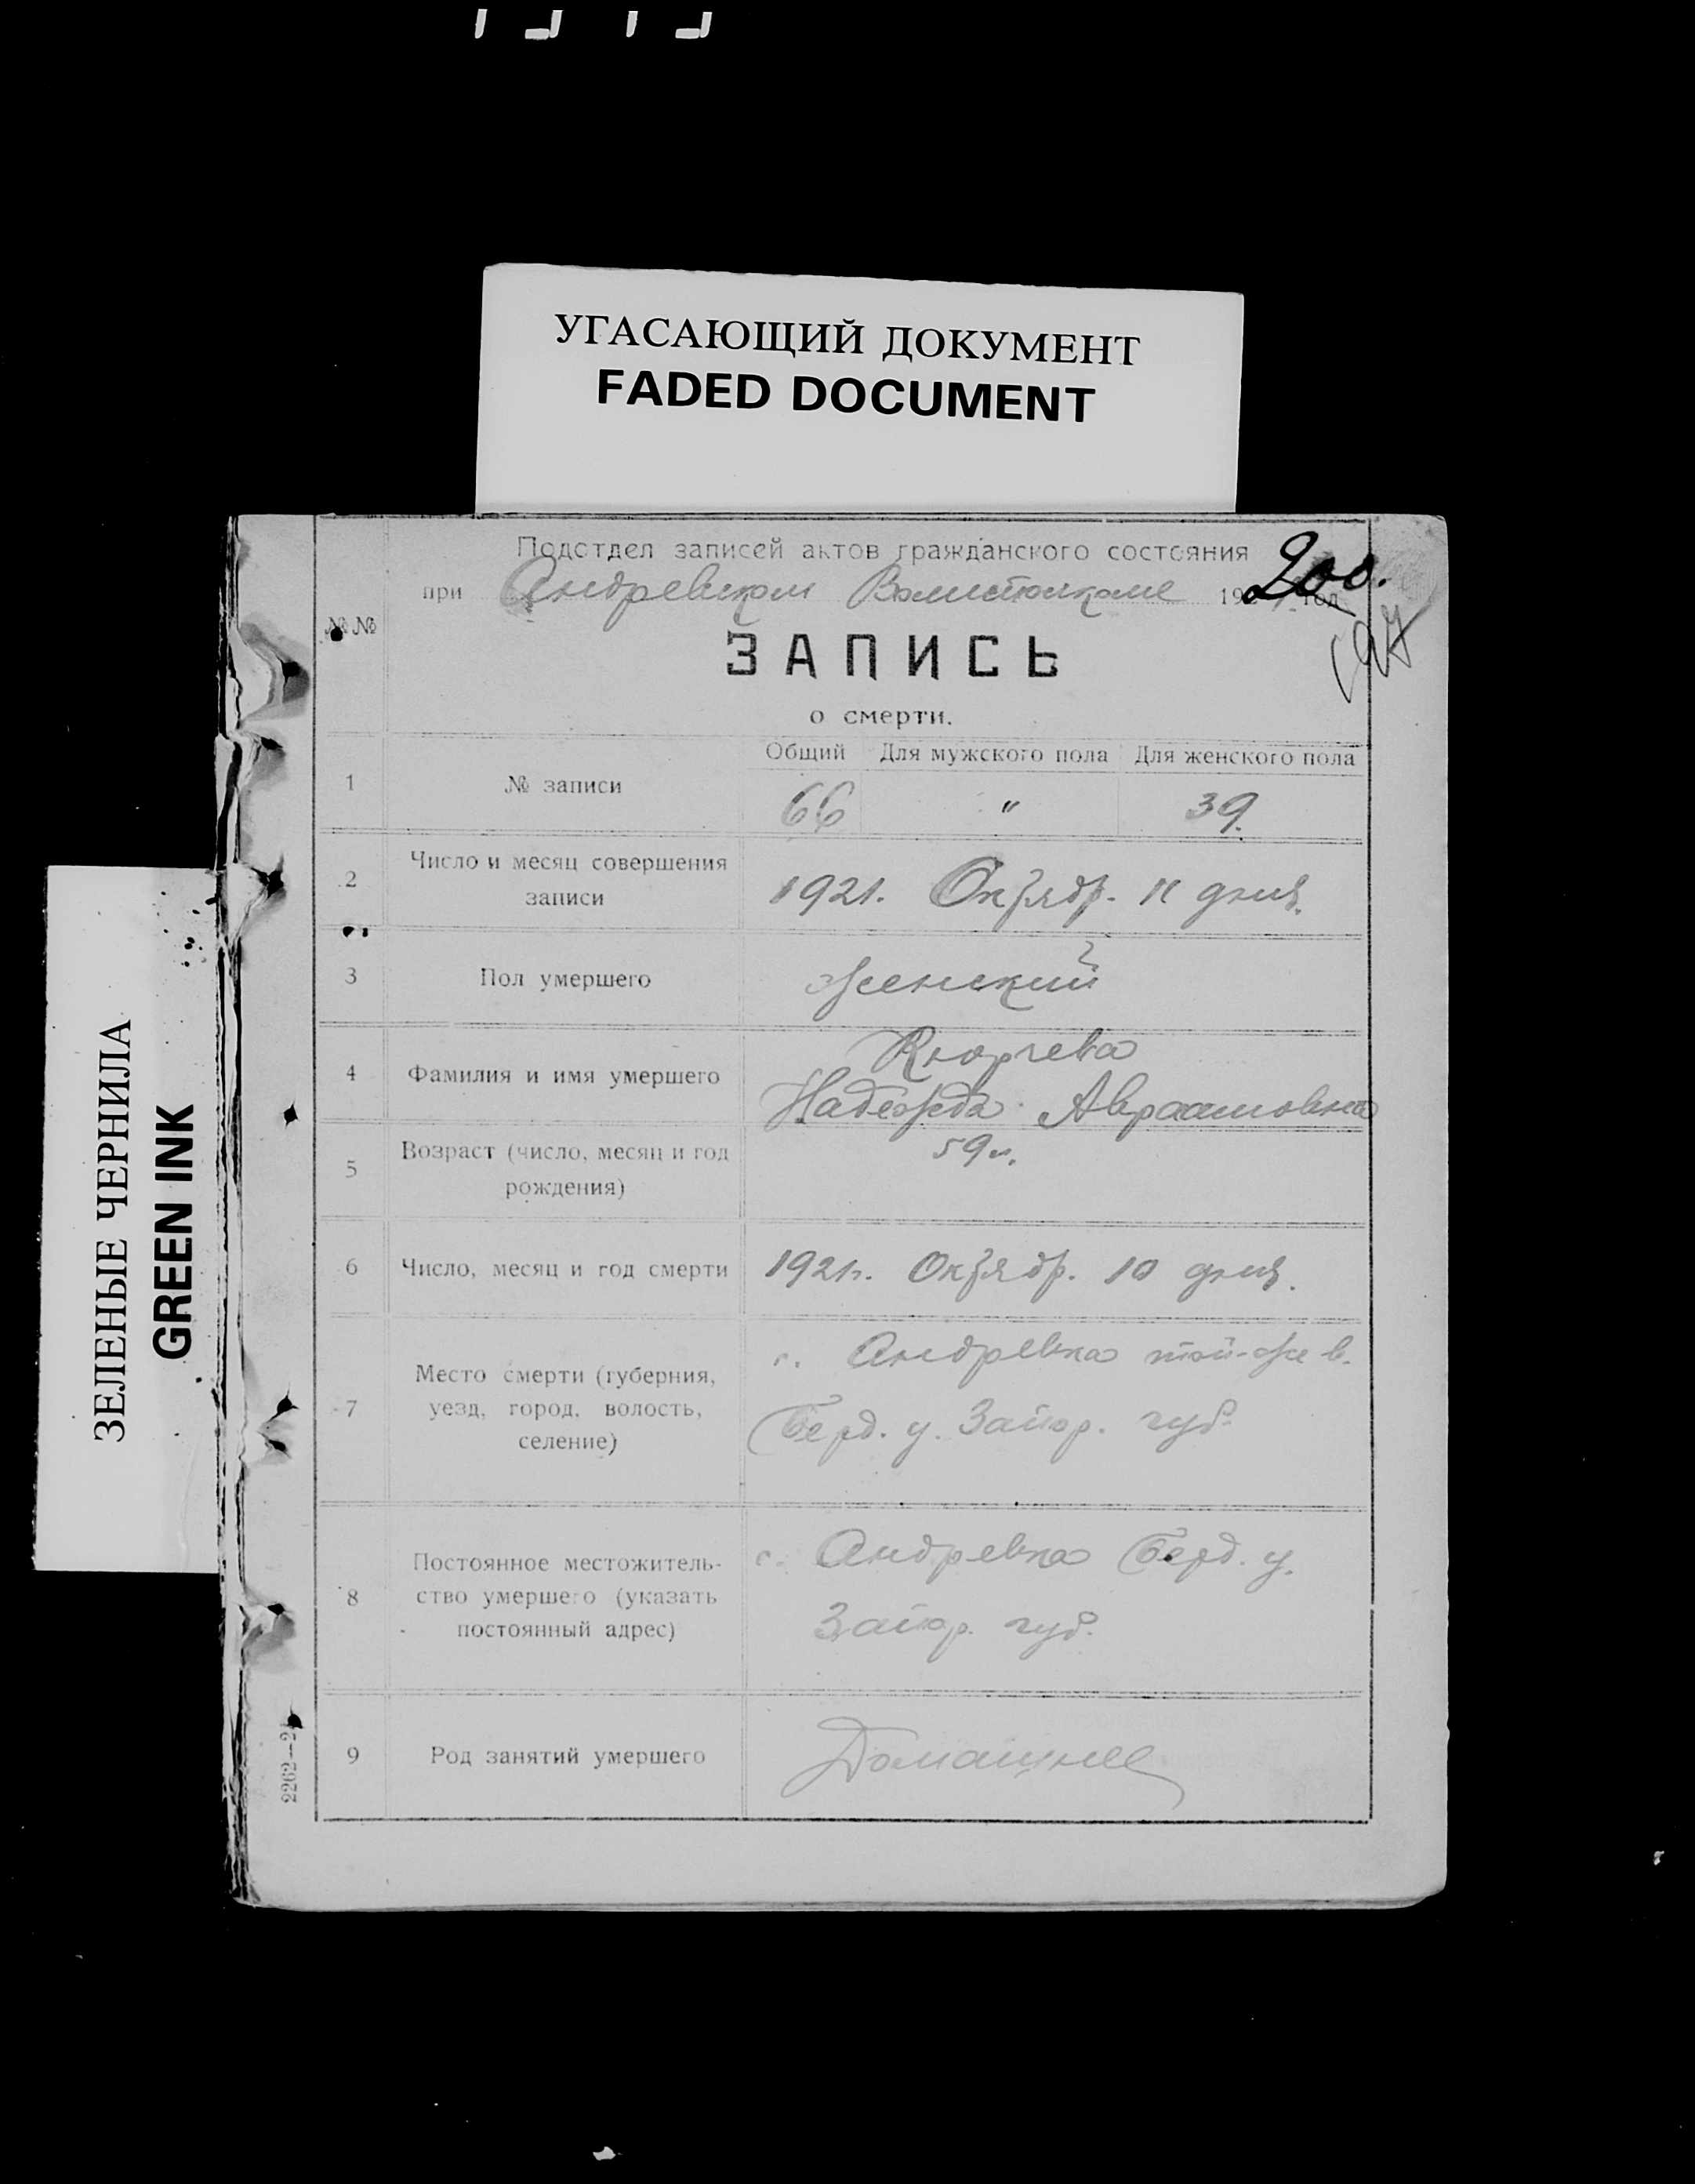 УГАСАЮЩИЙ ДОКУМЕНТ
FADED DOCUMENT
ЗЕЛЕНЫЕ ЧЕРНИЛА
GREEN INK
Подотдел записей актов гражданского состояния
200.
при Андревском Волисполкоме 192 год
197
№№
ЗАПИСЬ
о смерти.
Общий Для мужского пола Для женского пола
1 № записи 66 " 39.
2 Число и месяц совершения
записи
1921. Октябр. 11 дня.
3 Пол умершего Женский
4 Фамилия и имя умершего
Кюрчева
Надежда Авраамовна
5 Возраст (число, месяц и год
рождения)
59 л.
6 Число, месяц и год смерти 1921г. Октябр. 10 дня.
7 Место смерти (губерния,
уезд, город, волость,
селение)
с. Андревка той-же в.
Берд. у. Запор. губ.
8 Постоянное местожитель-
ство умершего (указать
постоянный адрес)
с. Андревка Берд. у.
Запор. губ.
9 Род занятий умершего Домашнее
2262—21